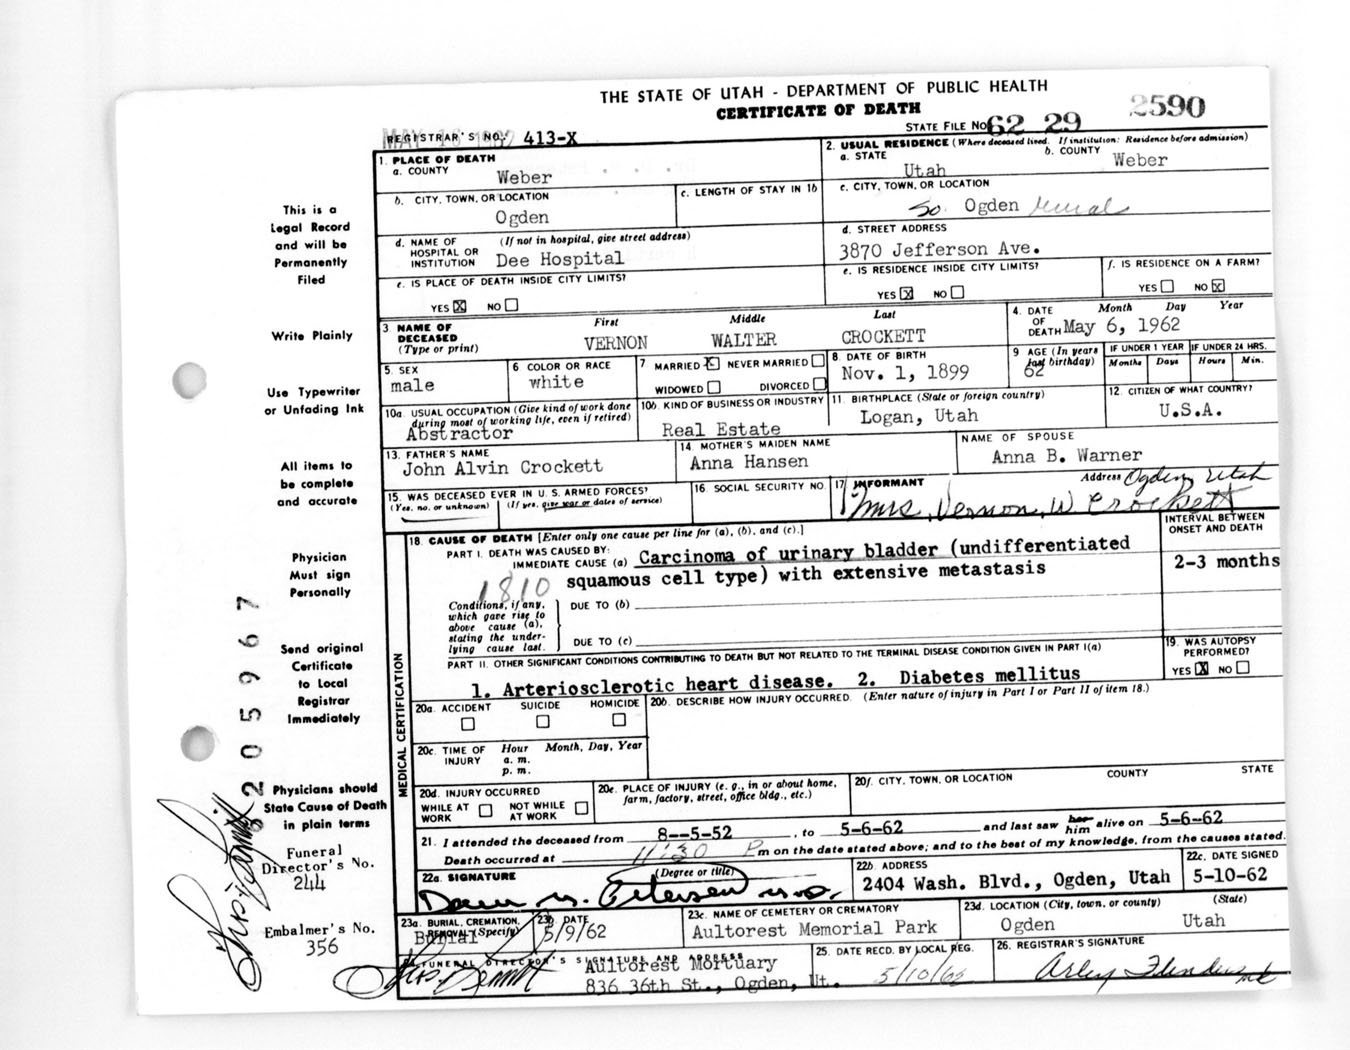 THE STATE OF UTAH - DEPARTMENT OF PUBLIC HEALTH
CERTIFICATE OF DEATH
2590
STATE FILE No. 62 29
REGISTRAR'S NO. 413-X
1. PLACE OF DEATH
a. COUNTY Weber
2. USUAL RESIDENCE (Where deceased lived. If institution: Residence before admission)
a. STATE Utah b. COUNTY Weber
b. CITY, TOWN, OR LOCATION Ogden
c. LENGTH OF STAY IN 1b
c. CITY, TOWN, OR LOCATION
So. Ogden rural
d. NAME OF HOSPITAL OR INSTITUTION (If not in hospital, give street address)
Dee Hospital
d. STREET ADDRESS
3870 Jefferson Ave.
e. IS PLACE OF DEATH INSIDE CITY LIMITS?
YES X NO
e. IS RESIDENCE INSIDE CITY LIMITS?
YES X NO
f. IS RESIDENCE ON A FARM?
YES NO X
3 NAME OF DECEASED (Type or print)
First Middle Last
VERNON WALTER CROCKETT
4. DATE OF DEATH Month Day Year
May 6, 1962
5. SEX
male
6 COLOR OR RACE
white
7 MARRIED X NEVER MARRIED
WIDOWED DIVORCED
8. DATE OF BIRTH
Nov. 1, 1899
9 AGE (In years last birthday)
62
IF UNDER 1 YEAR
Months Days
IF UNDER 24 HRS.
Hours Min.
10a. USUAL OCCUPATION (Give kind of work done during most of working life, even if retired)
Abstractor
10b. KIND OF BUSINESS OR INDUSTRY
Real Estate
11. BIRTHPLACE (State or foreign country)
Logan, Utah
12. CITIZEN OF WHAT COUNTRY?
U.S.A.
13. FATHER'S NAME
John Alvin Crockett
14. MOTHER'S MAIDEN NAME
Anna Hansen
NAME OF SPOUSE
Anna B. Warner
15. WAS DECEASED EVER IN U. S. ARMED FORCES?
(Yes, no, or unknown) (If yes, give war or dates of service)
16. SOCIAL SECURITY NO.
17 INFORMANT Address Ogden, Utah
Mrs. Vernon W Crockett
MEDICAL CERTIFICATION
18. CAUSE OF DEATH [Enter only one cause per line for (a), (b), and (c).]
INTERVAL BETWEEN ONSET AND DEATH
PART I. DEATH WAS CAUSED BY:
IMMEDIATE CAUSE (a) Carcinoma of urinary bladder (undifferentiated
1810 squamous cell type) with extensive metastasis
2-3 months
Conditions, if any, which gave rise to above cause (a), stating the underlying cause last.
DUE TO (b)
DUE TO (c)
PART II. OTHER SIGNIFICANT CONDITIONS CONTRIBUTING TO DEATH BUT NOT RELATED TO THE TERMINAL DISEASE CONDITION GIVEN IN PART I(a)
1. Arteriosclerotic heart disease. 2. Diabetes mellitus
19. WAS AUTOPSY PERFORMED?
YES X NO
20a. ACCIDENT SUICIDE HOMICIDE
20b. DESCRIBE HOW INJURY OCCURRED. (Enter nature of injury in Part I or Part II of item 18.)
20c. TIME OF INJURY Hour Month, Day, Year
a. m.
p. m.
20d. INJURY OCCURRED
WHILE AT WORK NOT WHILE AT WORK
20e. PLACE OF INJURY (e. g., in or about home, farm, factory, street, office bldg., etc.)
20f. CITY, TOWN, OR LOCATION COUNTY STATE
21. I attended the deceased from 8--5-52, to 5-6-62 and last saw her him alive on 5-6-62
Death occurred at 11:30 P m on the date stated above; and to the best of my knowledge, from the causes stated.
22a. SIGNATURE (Degree or title)
Petersen M.D.
22b. ADDRESS
2404 Wash. Blvd., Ogden, Utah
22c. DATE SIGNED
5-10-62
23a. BURIAL, CREMATION, REMOVAL (Specify)
Burial
23b. DATE
5/9/62
23c. NAME OF CEMETERY OR CREMATORY
Aultorest Memorial Park
23d. LOCATION (City, town, or county) (State)
Ogden Utah
FUNERAL DIRECTOR'S SIGNATURE AND ADDRESS
Aultorest Mortuary
836 36th St., Ogden, Ut.
25. DATE RECD. BY LOCAL REG.
5/10/62
26. REGISTRAR'S SIGNATURE
This is a
Legal Record
and will be
Permanently
Filed
Write Plainly
Use Typewriter
or Unfading Ink
All items to
be complete
and accurate
Physician
Must sign
Personally
Send original
Certificate
to Local
Registrar
Immediately
Physicians should
State Cause of Death
in plain terms
Funeral
Director's No.
244
Embalmer's No.
356
6205967